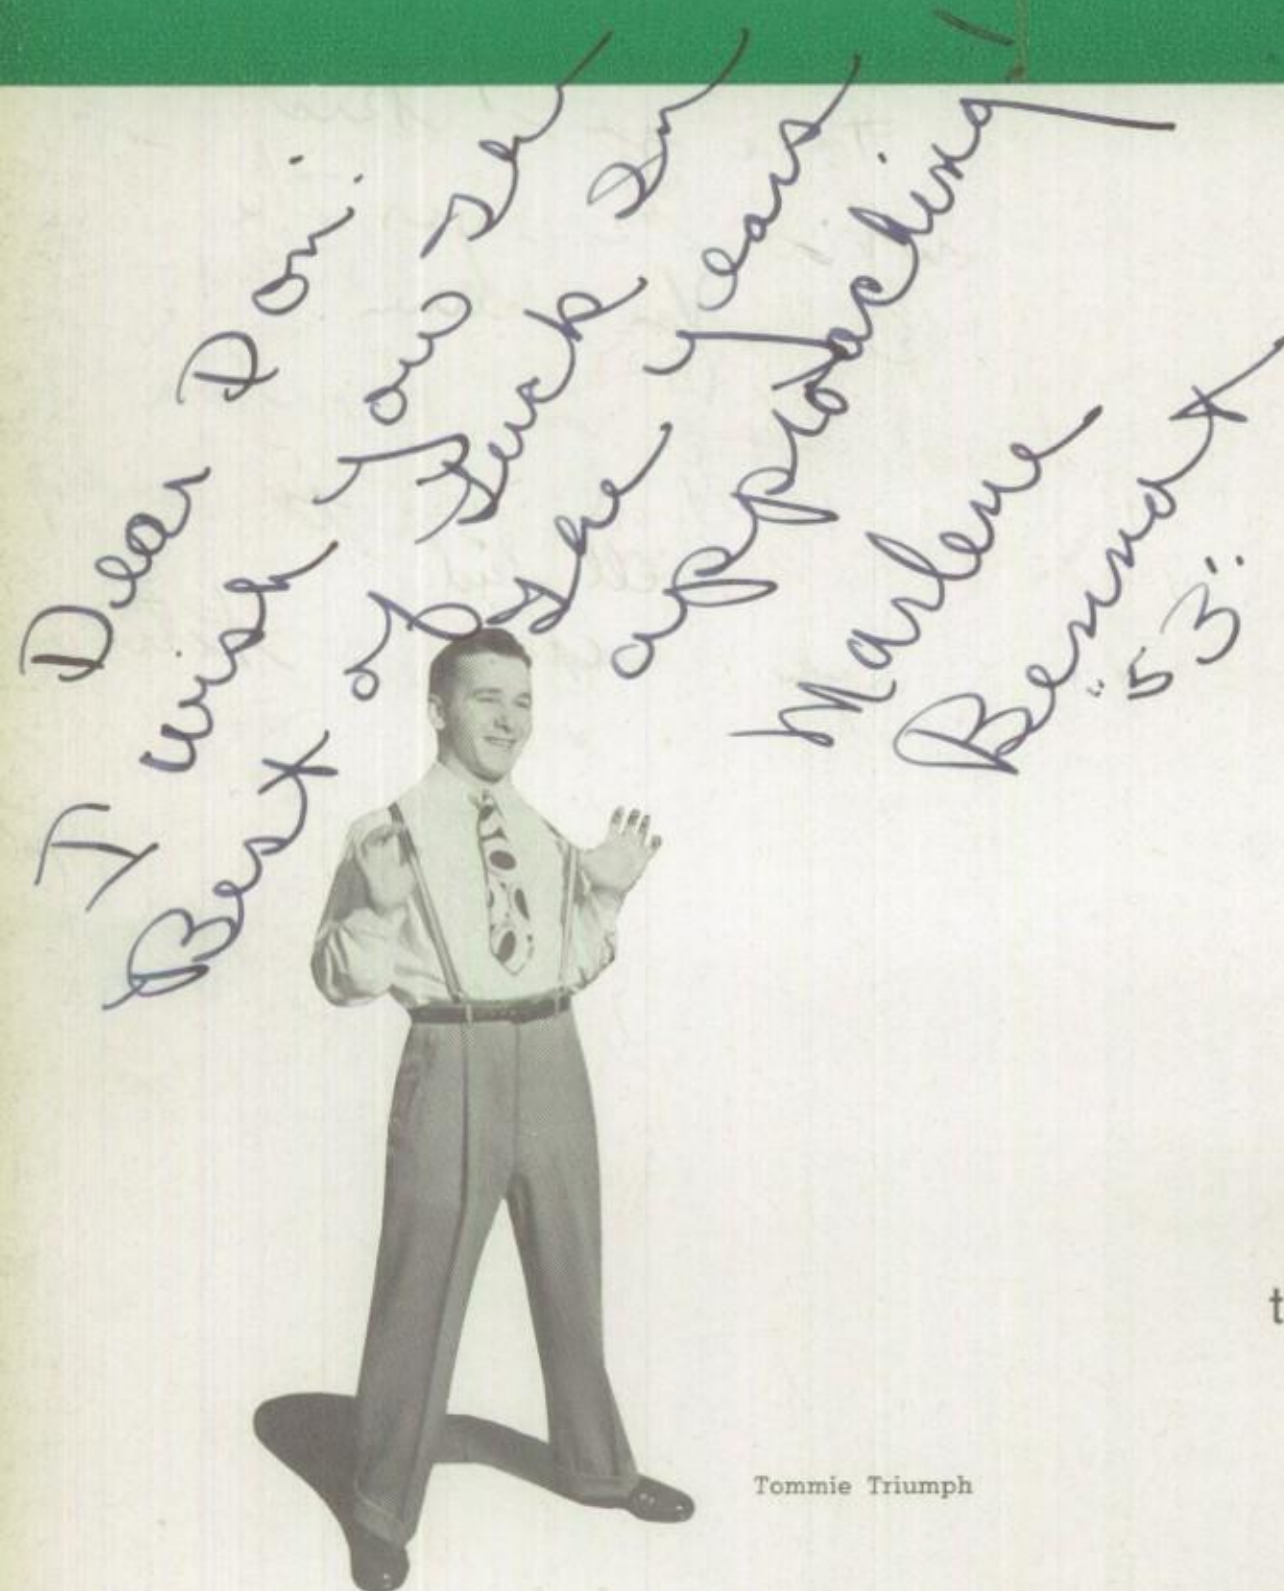 Dear Don:
I wish you the
Best of luck in
the years
approaching!
Marlene
Bennat
"53"
t
Tommie Triumph